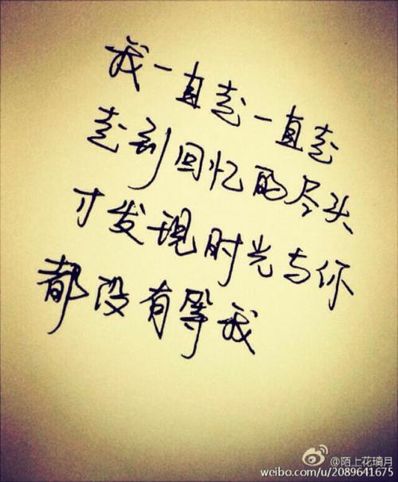 我一直走一直走
走到回忆的尽头
才发现时光与你
都没有等我
@陌上花璃月
weibo.com/u/2089641675